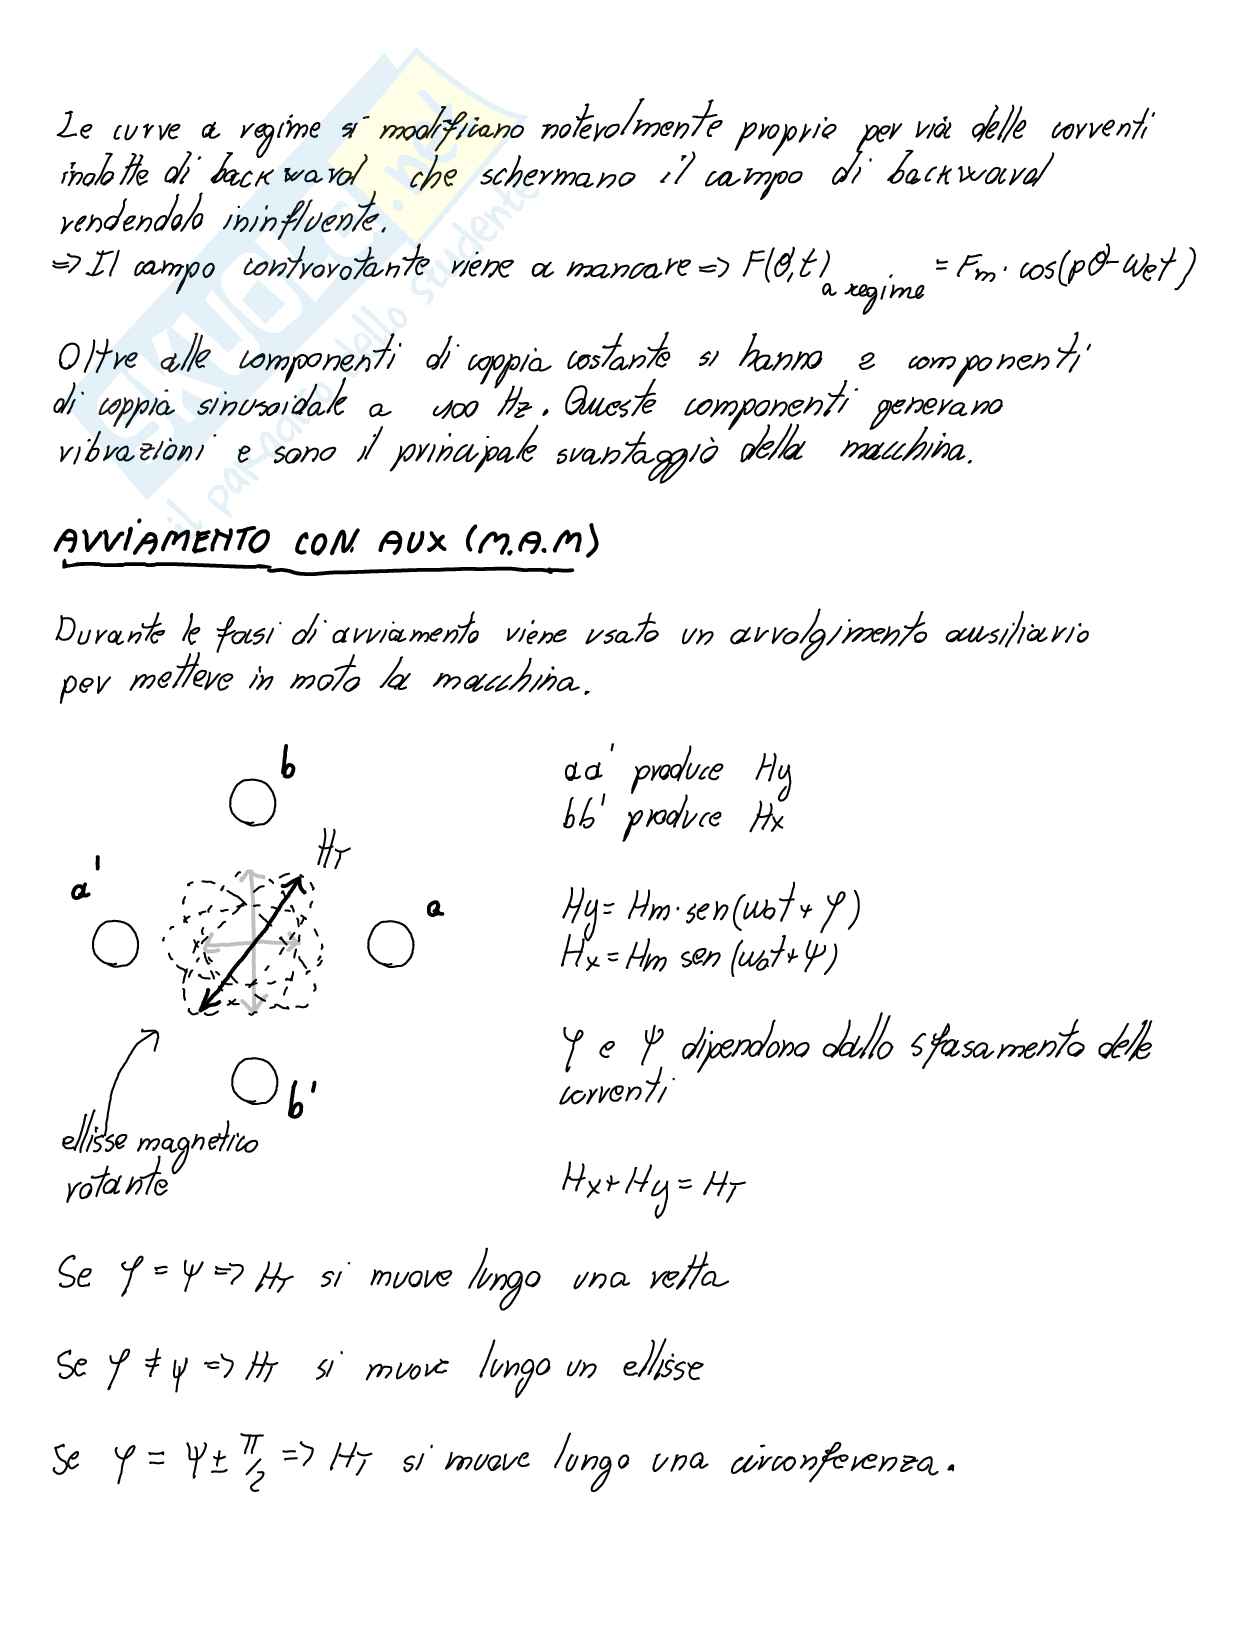 Le curve a regime si modificano notevolmente proprio per via delle correnti
indotte di backward che schermano il campo di backward
rendendolo ininfluente.
=> Il campo controrotante viene a mancare => F(θ,t) a regime = Fm · cos(pθ-wet)
Oltre alle componenti di coppia costante si hanno 2 componenti
di coppia sinusoidale a 100 Hz. Queste componenti generano
vibrazioni e sono il principale svantaggio della macchina.
AVVIAMENTO CON AUX (M.A.M)
Durante le fasi di avviamento viene usato un avvolgimento ausiliario
per mettere in moto la macchina.
b
HT
a'
a
b'
ellisse magnetico
rotante
aa' produce Hy
bb' produce Hx
Hy = Hm · sen(w0t + φ)
Hx = Hm sen(w0t + ψ)
φ e ψ dipendono dallo sfasamento delle
correnti
Hx + Hy = HT
Se φ = ψ => HT si muove lungo una retta
Se φ ≠ ψ => HT si muove lungo un ellisse
Se φ = ψ ± π/2 => HT si muove lungo una circonferenza.
SKUOLA.net
il paradiso dello studente